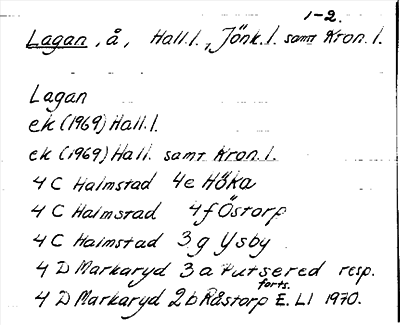 1-2.
Lagan, å, Hall.l., Jönk.l. samt Kron.l.
Lagan
ek (1969) Hall.l.
ek (1969) Hall. samt Kron.l.
4 C Halmstad 4e Höka
4 C Halmstad 4f Östorp
4 C Halmstad 3g Ysby
4 D Markaryd 3a Putsered resp.
4 D Markaryd 2b Råstorp E. Ll 1970.
forts.